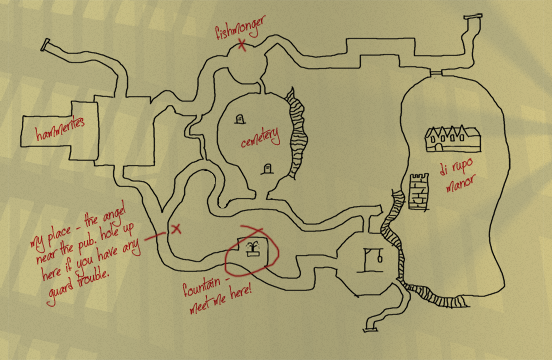 fishmonger
hammerites
cemetery
di rupo
manor
my place - the angel
near the pub. hole up
here if you have any
guard trouble.
fountain -
meet me here!